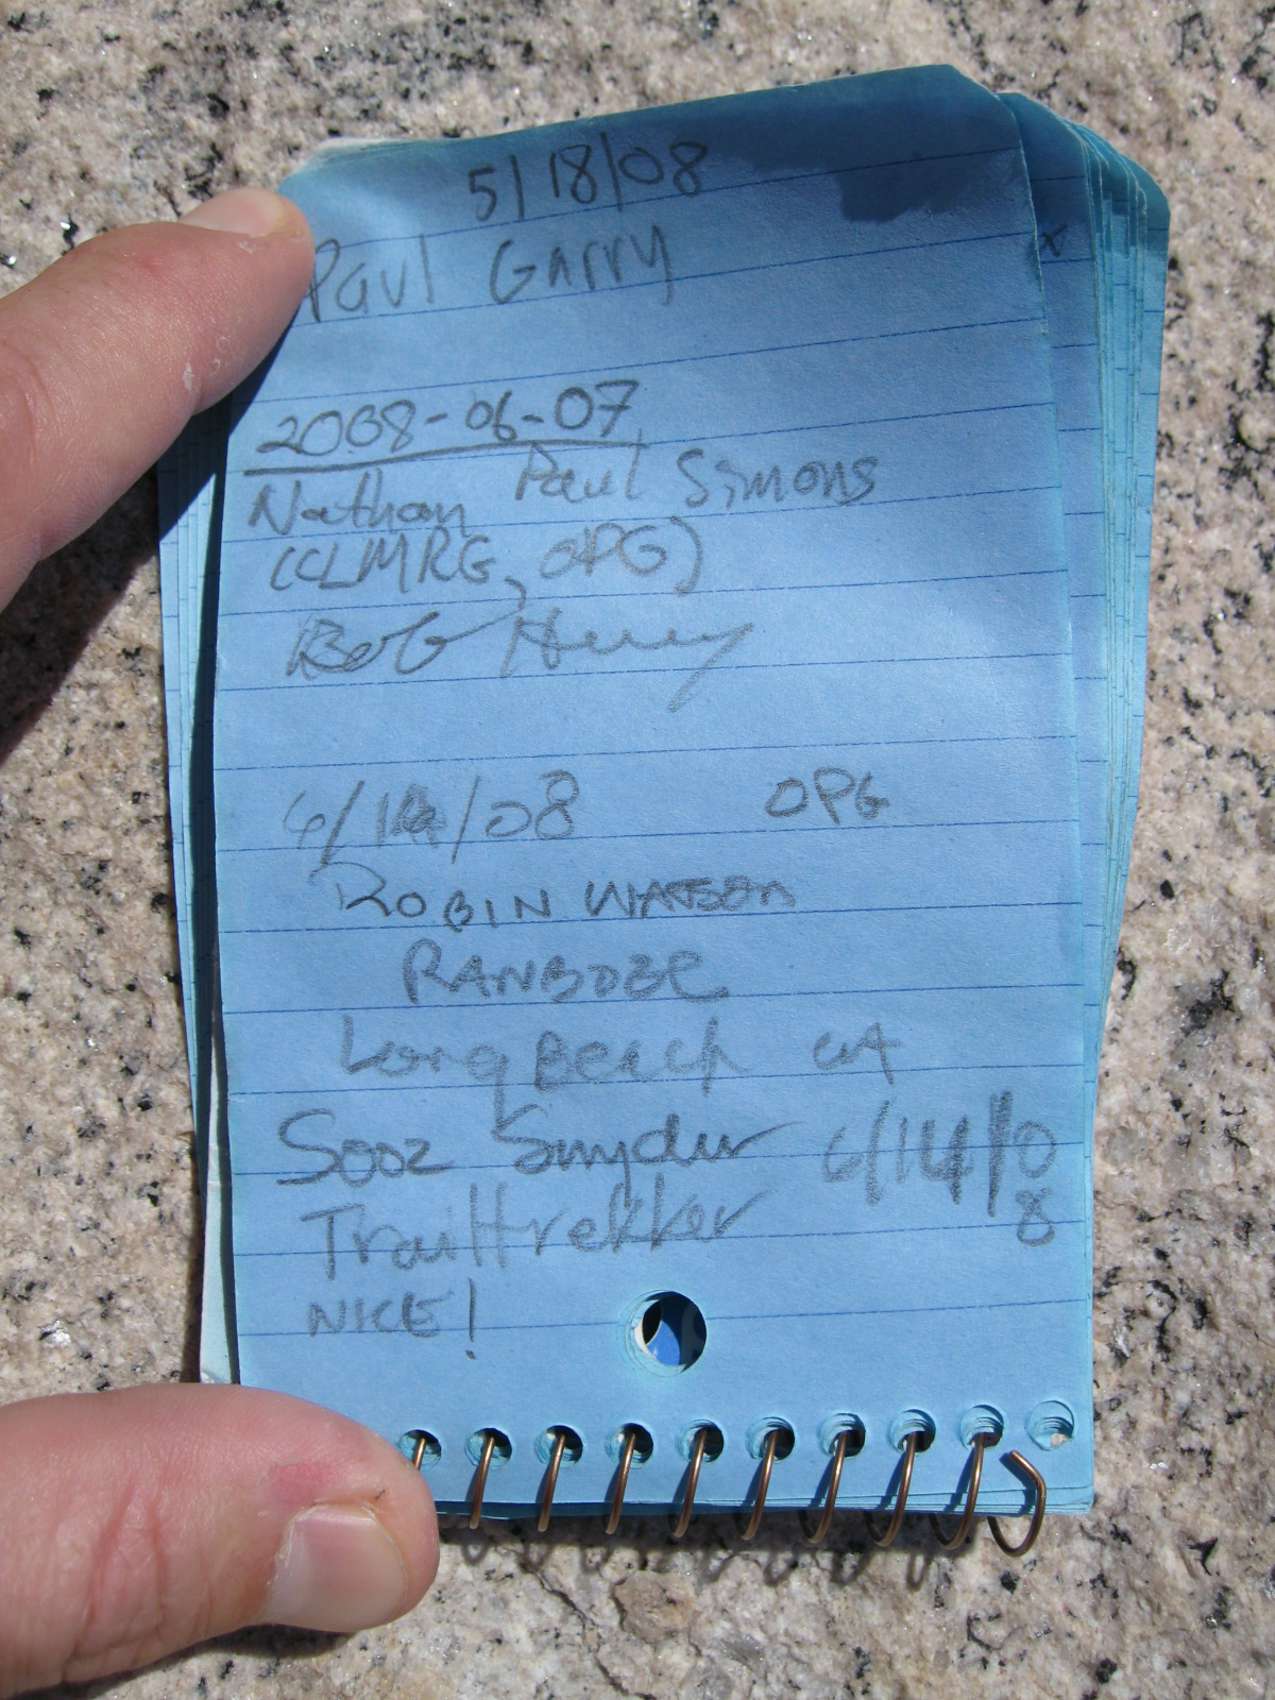 5/18/08
Paul Garry
2008-06-07
Nathan Paul Simons
(CLMRG, OPG)
Bob
6/14/08 OPG
ROBIN WATSON
RANBOZE
Long Beach CA
Sooz Snyder 6/14/08
Trailtrekker
NICE!